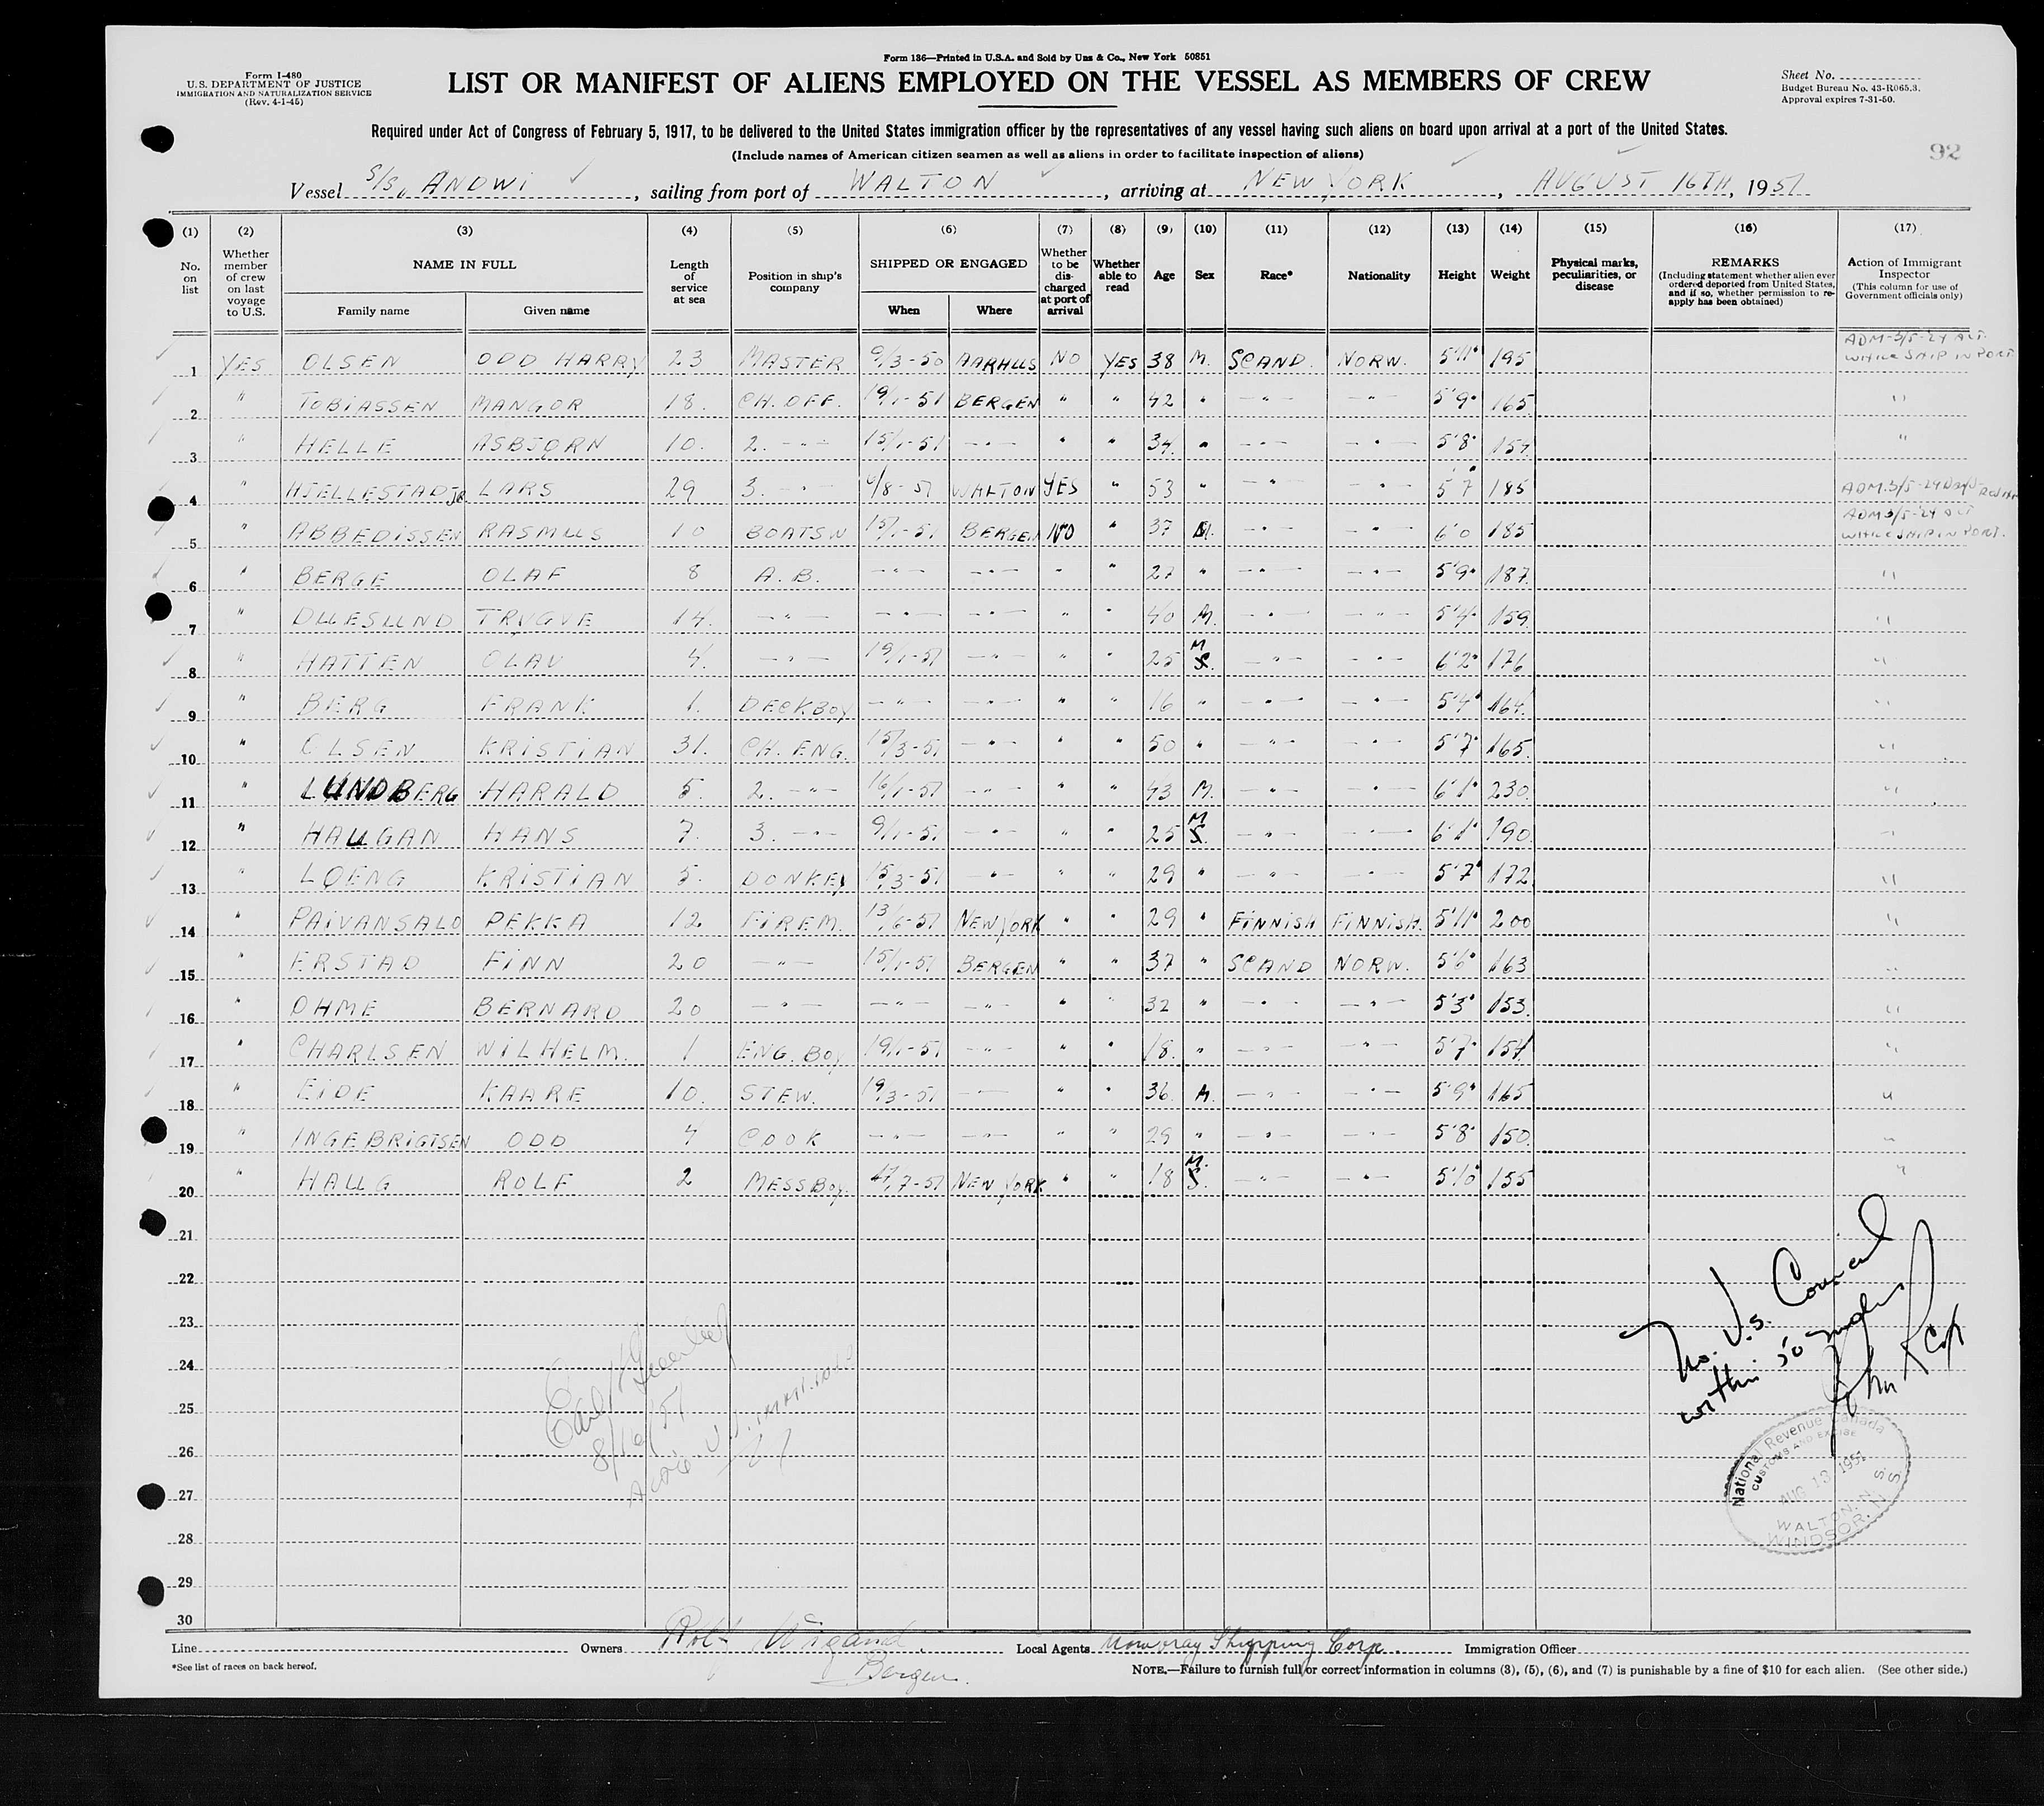 Form 136—Printed in U.S.A. and Sold by Unz & Co., New York 50851
Form I-480
U.S. DEPARTMENT OF JUSTICE
IMMIGRATION AND NATURALIZATION SERVICE
(Rev. 4-1-45)
LIST OR MANIFEST OF ALIENS EMPLOYED ON THE VESSEL AS MEMBERS OF CREW
Sheet No.
Budget Bureau No. 43-R065.3.
Approval expires 7-31-50.
Required under Act of Congress of February 5, 1917, to be delivered to the United States immigration officer by the representatives of any vessel having such aliens on board upon arrival at a port of the United States.
(Include names of American citizen seamen as well as aliens in order to facilitate inspection of aliens)
92
Vessel S/S. ANDWI, sailing from port of WALTON, arriving at NEW YORK, AUGUST 16TH, 1951
(1) (2) (3) (4) (5) (6) (7) (8) (9) (10) (11) (12) (13) (14) (15) (16) (17)
No. on list
Whether member of crew on last voyage to U.S.
NAME IN FULL
Family name Given name
Length of service at sea
Position in ship's company
SHIPPED OR ENGAGED
When Where
Whether to be discharged at port of arrival
Whether able to read
Age Sex Race* Nationality Height Weight
Physical marks, peculiarities, or disease
REMARKS
(Including statement whether alien ever ordered deported from United States, and if so, whether permission to reapply has been obtained)
Action of Immigrant Inspector
(This column for use of Government officials only)
1 YES OLSEN ODD HARRY 23 MASTER 9/3-50 AARHUS NO YES 38 M. SCAND. NORW. 5'11" 195 ADM-3/5-24 ACT. WHILE SHIP IN PORT
2 " TOBIASSEN MANGOR 18. CH. OFF. 19/1-51 BERGEN " " 42 " -"- -"- 5'9" 165 "
3 " HELLE ASBJØRN 10. 2. -"- 15/1-51 -"- " " 34 " -"- -"- 5'8" 154 "
4 " HJELLESTAD JR. LARS 29 3. -"- 4/8-51 WALTON YES " 53 " -"- -"- 5'7" 185 ADM.3/5-24
5 " ABBEDISSEN RASMUS 10 BOATSW 15/1-51 BERGEN NO " 37 M. -"- -"- 6'0 185 ADM 3/5-24 ACT WHILE SHIP IN PORT.
6 " BERGE OLAF 8 A.B. -"- -"- " " 27 " -"- -"- 5'9" 187 "
7 " DUESUND TRYGVE 14. -"- -"- -"- " " 40 M. -"- -"- 5'4" 159 "
8 " HATTEN OLAV 4. -"- 19/1-51 -"- " " 25 M -"- -"- 6'2" 176 "
9 " BERG FRANK 1. DECKBOY -"- -"- " " 16 " -"- -"- 5'4" 164 "
10 " OLSEN KRISTIAN 31. CH. ENG. 15/3-51 -"- " " 50 " -"- -"- 5'7" 165 "
11 " LUNDBERG HARALD 5. 2. -"- 16/1-51 -"- " " 43 M. -"- -"- 6'1" 230 "
12 " HAUGAN HANS 7. 3. -"- 9/1-51 -"- " " 25 M -"- -"- 6'1" 190 "
13 " LØENG KRISTIAN 5. DONKEY 15/3-51 -"- " " 29 " -"- -"- 5'7" 172 "
14 " PAIVANSALO PEKKA 12 FIREM. 13/6-51 NEW YORK " " 29 " FINNISH FINNISH. 5'11" 200 "
15 " ERSTAD FINN 20 -"- 15/1-51 BERGEN " " 37 " SCAND NORW. 5'6" 163 "
16 " OHME BERNARD 20 -"- -"- -"- " " 32 " -"- -"- 5'3" 153 "
17 " CHARLSEN WILHELM. 1 ENG. BOY 19/1-51 -"- " " 18. " -"- -"- 5'7" 154 "
18 " EIDE KAARE 10. STEW. 19/3-51 -"- " " 36. M. -"- -"- 5'9" 165 "
19 " INGEBRIGTSEN ODD 4 COOK -"- -"- " " 29 " -"- -"- 5'8" 150 "
20 " HAUG ROLF 2 MESSBOY. 7-51 NEW YORK " " 18 M. -"- -"- 5'10" 155 "
21
22
23
24
25
26
27
28
29
30
No. U.S. Council
within 50 miles
John R Cox
8/16/51
National Revenue Canada
CUSTOMS AND EXCISE
AUG 13 1951
WALTON, N.S.
WINDSOR, N.S.
Line Owners Rolf Wigand Bergen. Local Agents Norway Shipping Corp. Immigration Officer
*See list of races on back hereof.
NOTE.—Failure to furnish full or correct information in columns (3), (5), (6), and (7) is punishable by a fine of $10 for each alien. (See other side.)